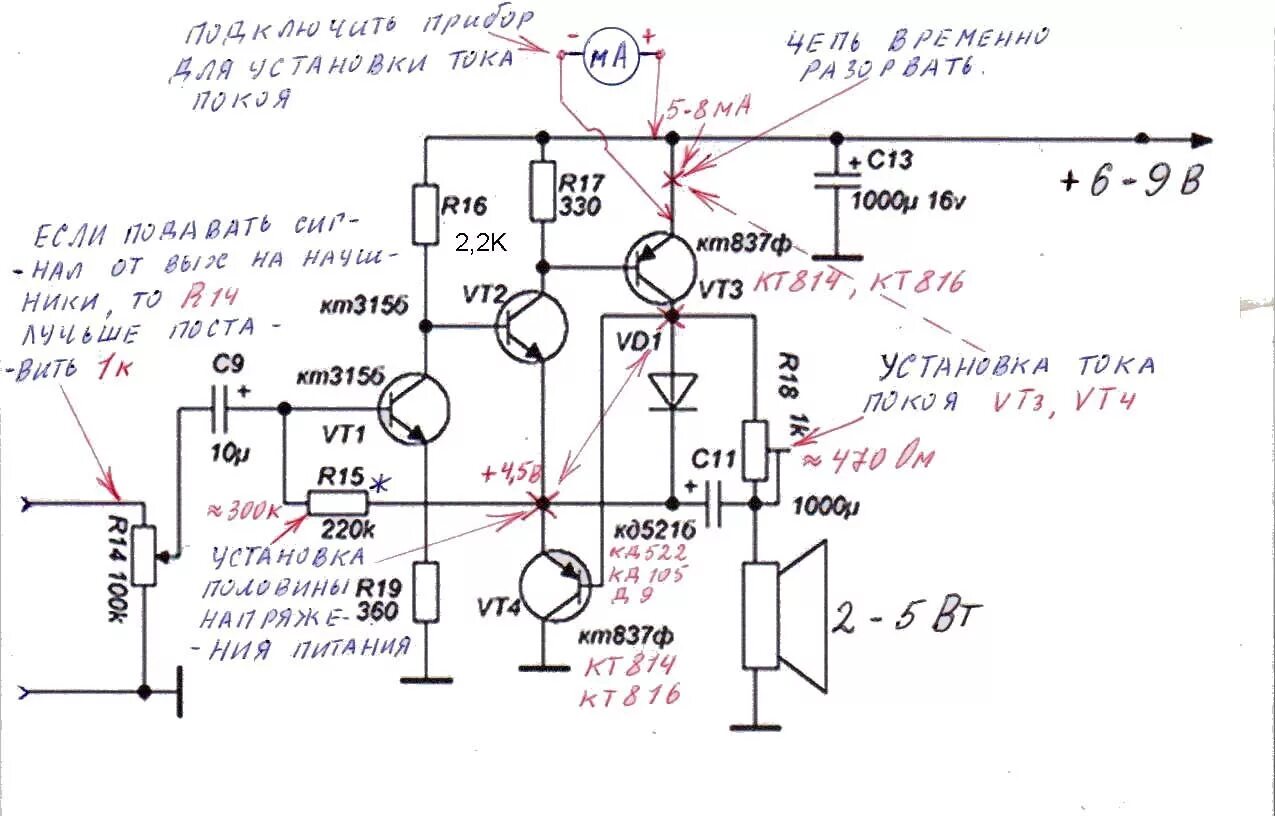 ПОДКЛЮЧИТЬ ПРИБОР
ДЛЯ УСТАНОВКИ ТОКА
ПОКОЯ
- мА +
ЦЕПЬ ВРЕМЕННО
РАЗОРВАТЬ.
5-8 мА
+ C13
1000µ 16v
+ 6 - 9 В
R16
2,2K
R17
330
кт837ф
VT3
КТ814, КТ816
ЕСЛИ ПОДАВАТЬ СИГ-
- НАЛ ОТ ВЫХ НА НАУШ-
НИКИ, ТО R14
ЛУЧЬШЕ ПОСТА -
- ВИТЬ 1к
кт315б
VT2
VD1
C9
+
10µ
кт315б
VT1
R18 1k
УСТАНОВКА ТОКА
ПОКОЯ VT3, VT4
≈ 470 Ом
R15 *
≈ 300к
220k
+4,5В
C11
+
1000µ
кд521б
КД522
КД105
Д9
R14 100k
УСТАНОВКА
ПОЛОВИНЫ
НАПРЯЖЕ-
- НИЯ ПИТАНИЯ
R19
360
VT4
кт837ф
КТ814
КТ816
2 - 5 Вт